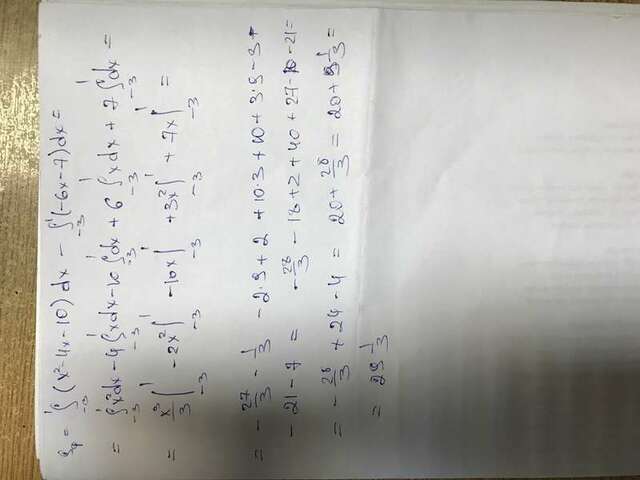 S_q = ∫_{-3}^{1} (x² - 4x - 10) dx - ∫_{-3}^{1} (-6x - 7) dx =
= ∫_{-3}^{1} x² dx - 4 ∫_{-3}^{1} x dx - 10 ∫_{-3}^{1} dx + 6 ∫_{-3}^{1} x dx + 7 ∫_{-3}^{1} dx =
= x³/3 |_{-3}^{1} - 2x² |_{-3}^{1} - 10x |_{-3}^{1} + 3x² |_{-3}^{1} + 7x |_{-3}^{1} =
= - 27/3 - 1/3 - 2·9 + 2 + 10·3 + 10 + 3·9 - 3 +
- 21 - 7 = - 28/3 - 18 + 2 + 40 + 27 - 10 - 21 =
= - 28/3 + 24 - 4 = 20 + 28/3 = 20 + 9 1/3 =
= 29 1/3